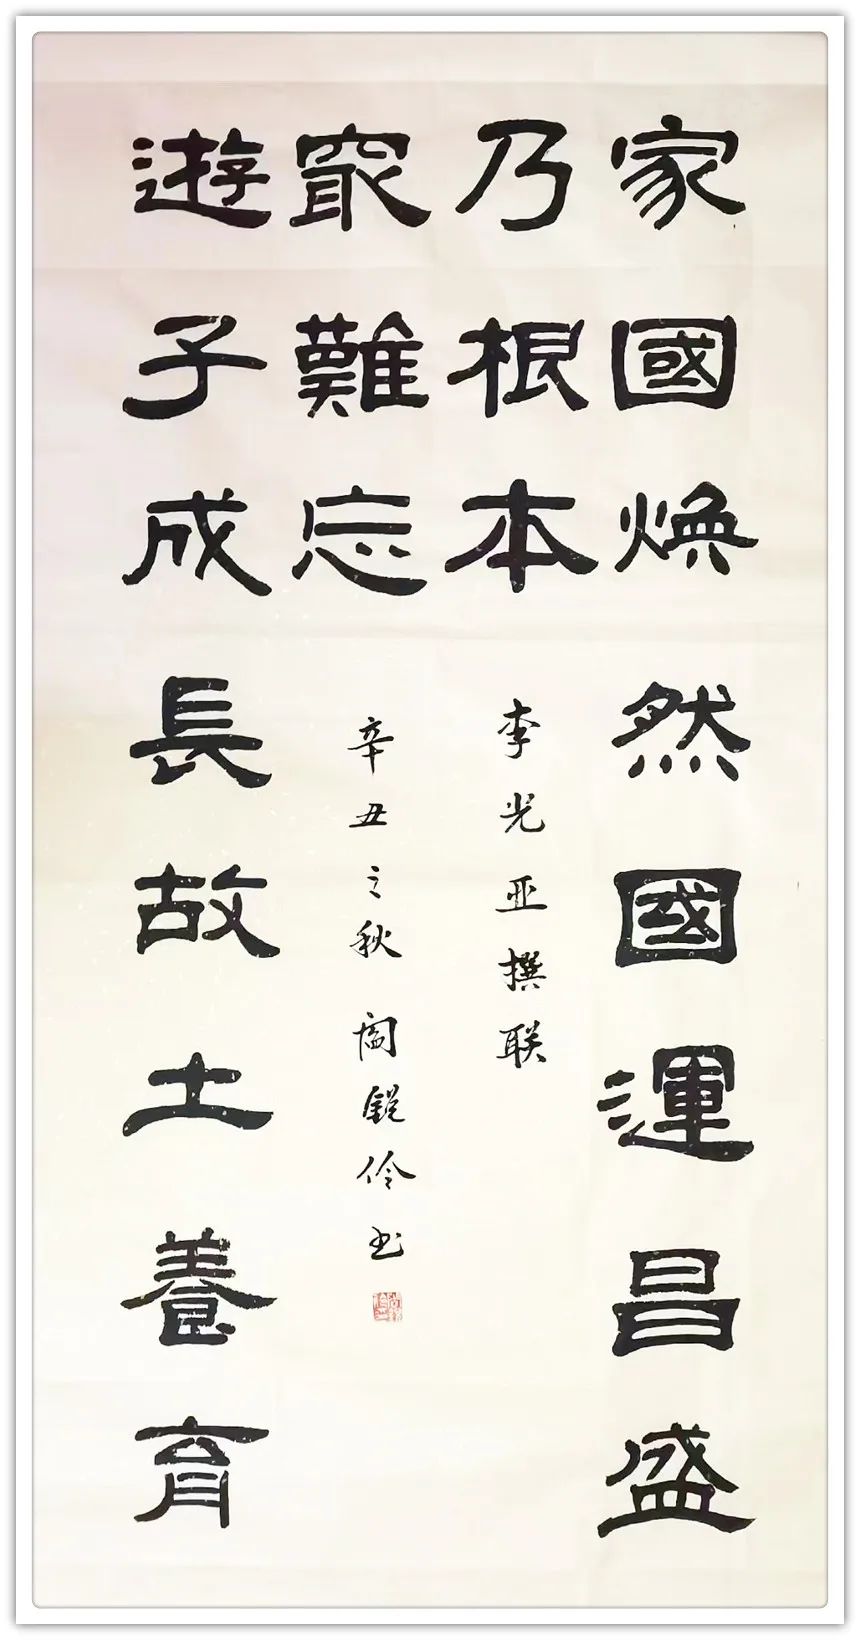 家國焕然國運昌盛
乃根本
李光亚撰联
遊子成長故土養育
㝡難忘
辛丑之秋 阎锐伶书